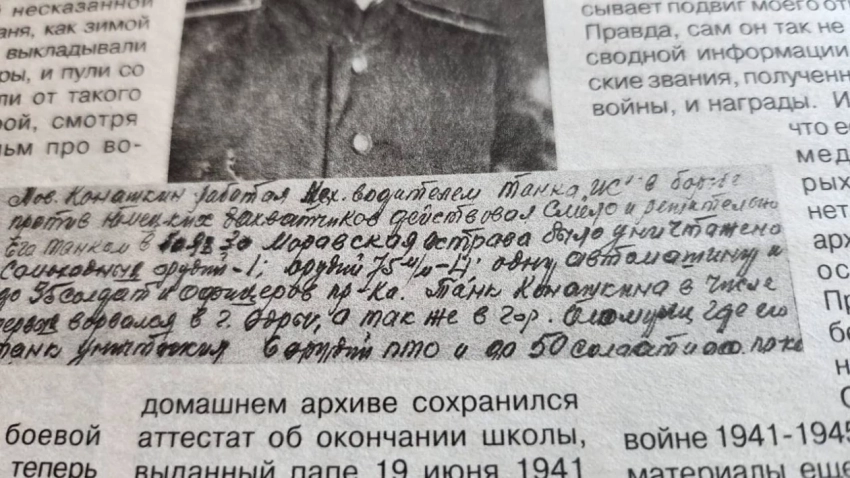 несказанной
аня, как зимой
выкладывали
ры, и пули со
ли от такого
рой, смотря
ьм про во-
сывает подвиг моего от
Правда, сам он так не
сводной информации
ские звания, полученн
войны, и награды. И
что е
мед
рых
нет
арх
ос
Пр
бе
н
Тов. Конашкин работая мех. водителем танка "ИС" в борьбе
против немецких захватчиков действовал смело и решительно
Его танком в боях за Моравская острава было уничтажено
самоходных орудий-1; орудий 75 м/м-4; одну автомашину и
до 35 солдат и офицеров пр-ка. Танк Конашкина в числе
первых ворвался в г. а так же в гор. Оломуиц где его
танк уничтожил 6 орудий ПТО и до 50 солдат и
домашнем архиве сохранился
аттестат об окончании школы,
выданный папе 19 июня 1941
боевой
теперь
войне 1941-1945
материалы еще